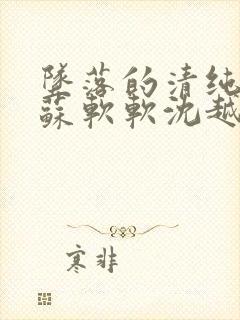 墜落的清纯
蘇軟軟沈越
寒非